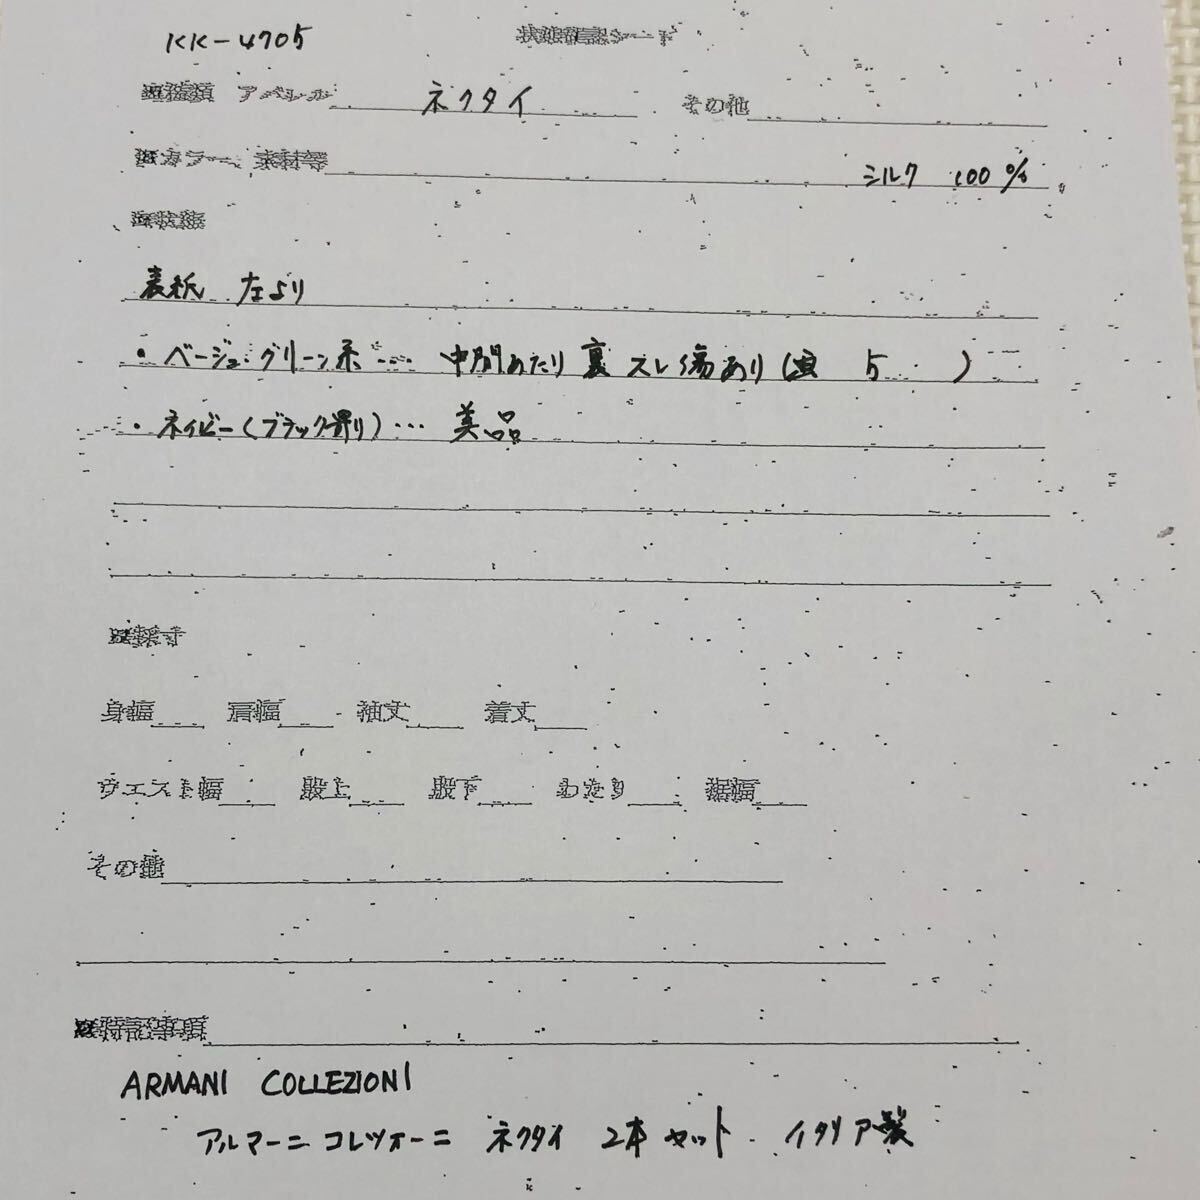 KK-4705
状態確認シート
アパレル ネクタイ その他
カラー、素材等 シルク 100%
状態
表紙 左より
・ベージュ・グリーン系…… 中間あたり 裏 スレ傷あり( 5 )
・ネイビー(ブラック寄り)… 美品
採寸
身幅 肩幅 袖丈 着丈
ウエスト幅 股上 股下 わたり 裾幅
その他
特記事項
ARMANI COLLEZIONI
アルマーニ コレツォーニ ネクタイ 2本セット イタリア製